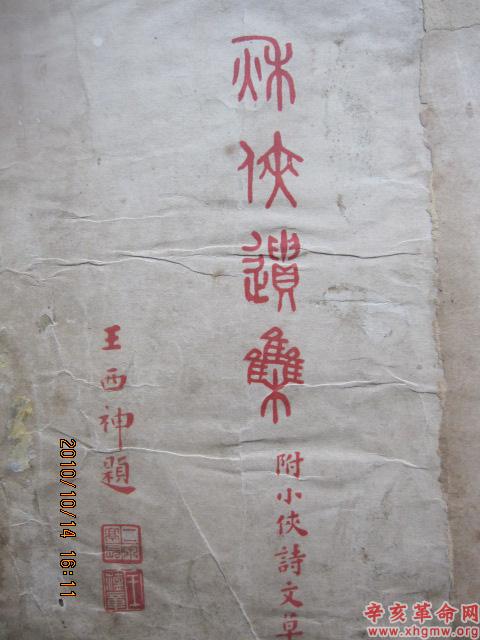 秌俠遺集
附小俠詩文草
王西神題
2010/10/14 16:11
辛亥革命网
www.xhgmw.org